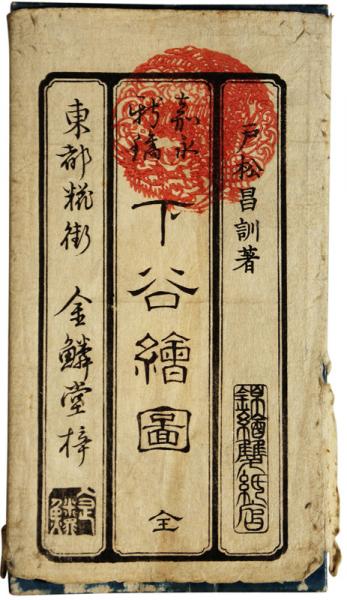 戸松昌訓著
錦繪雙紙店
嘉永
新鐫
下谷繪圖
全
東都糀街 金鱗堂梓